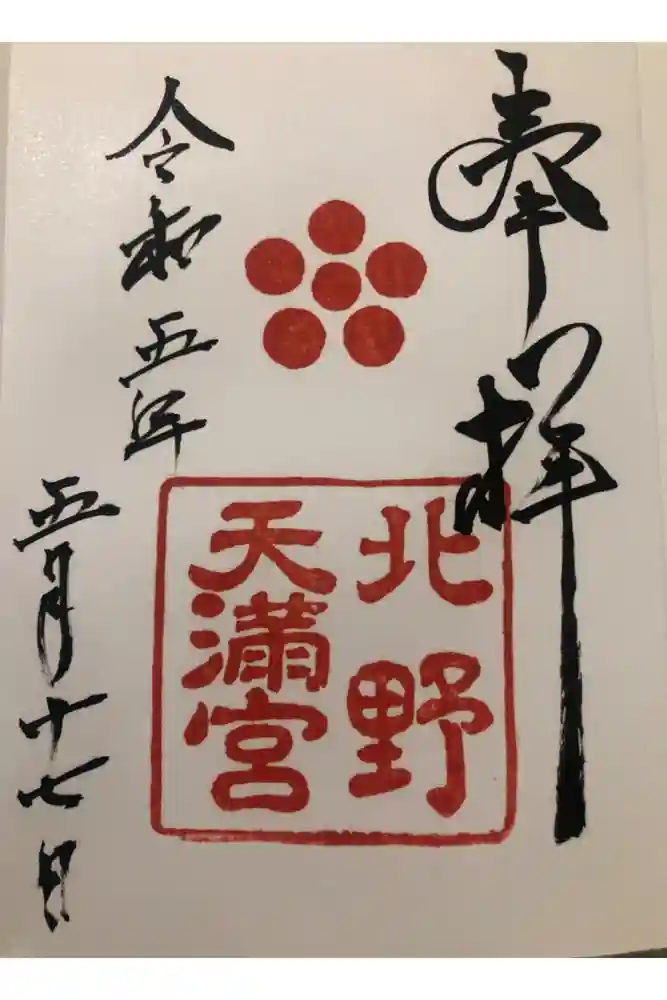 奉拝
北野
天満宮
令和五年
五月十七日